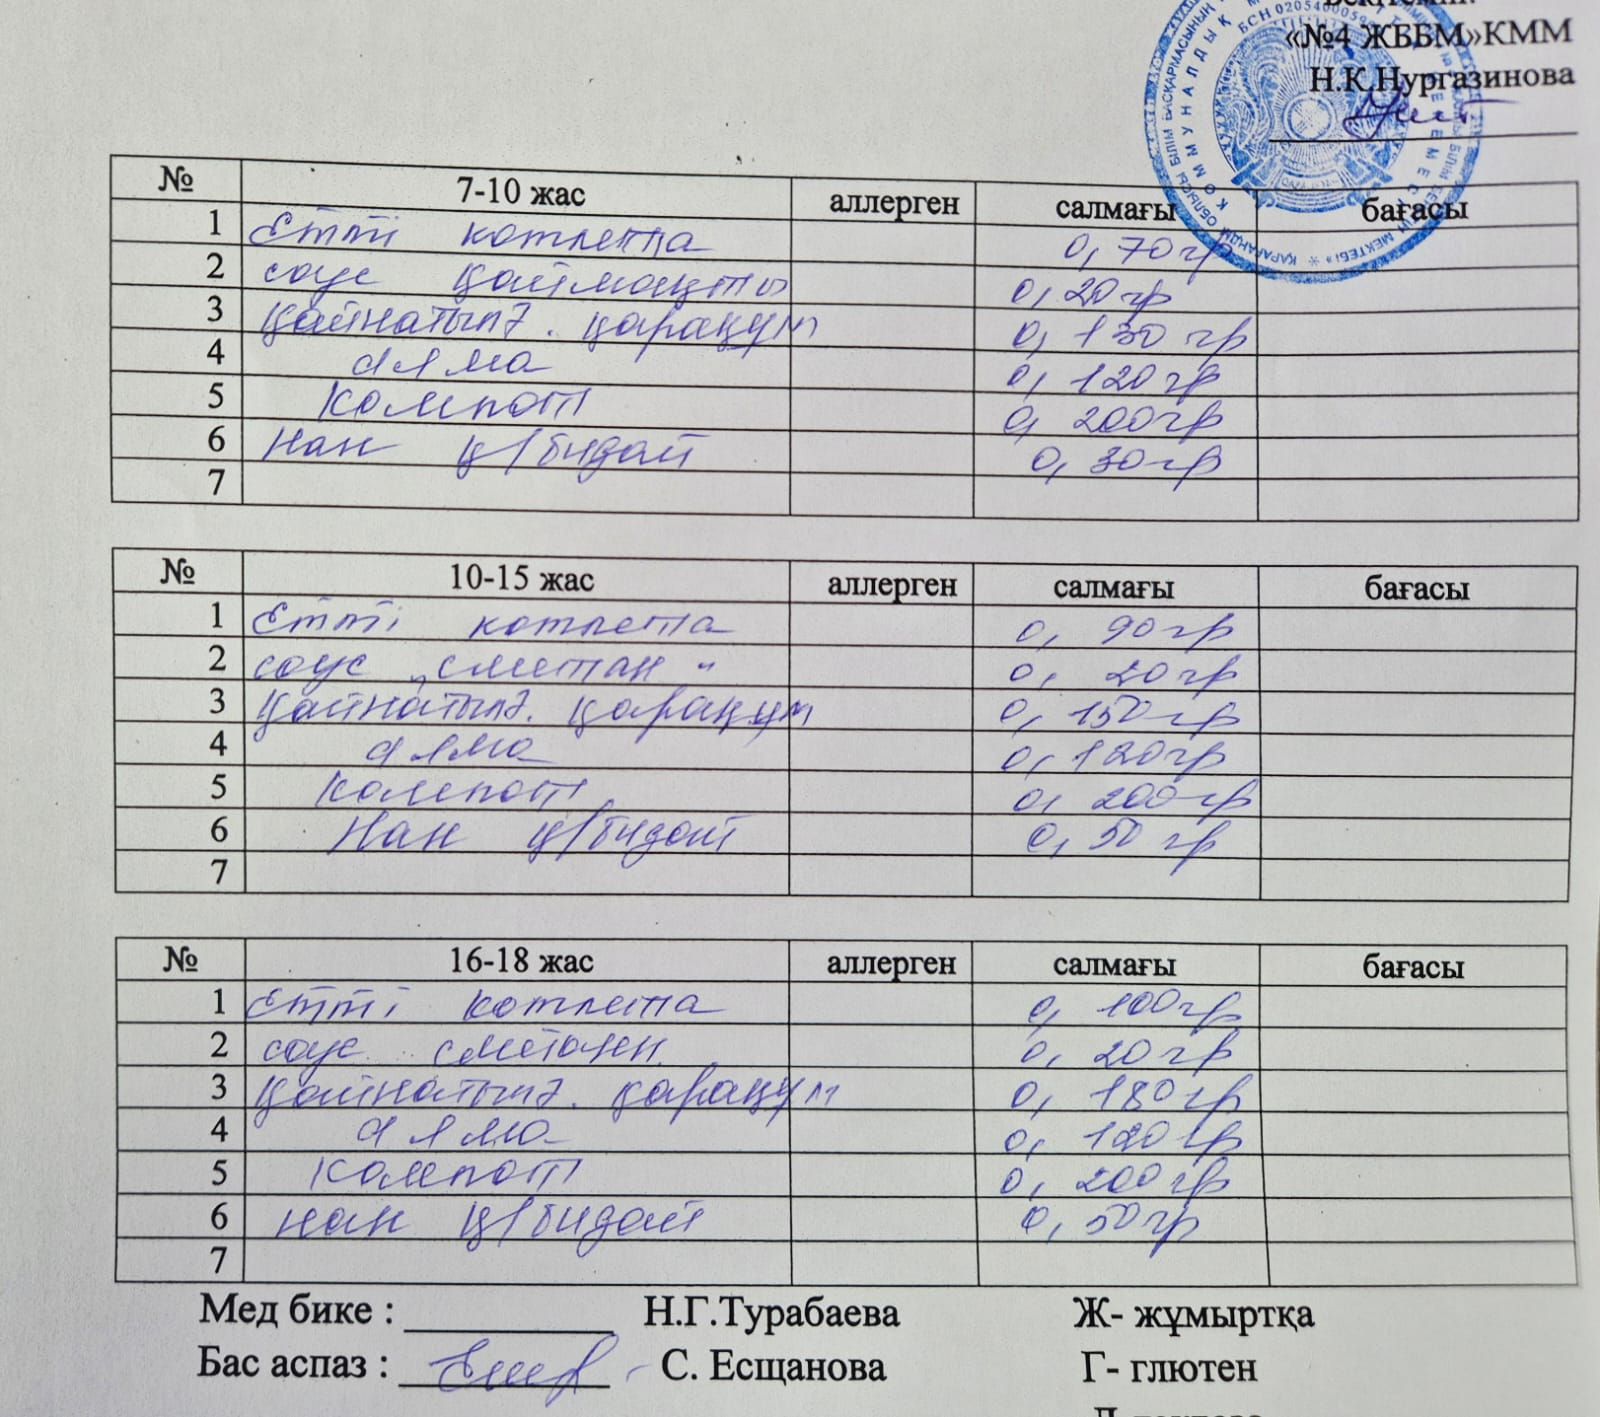 Бекітемін:
«№4 ЖББМ»КММ
Н.К.Нургазинова
№ 7-10 жас аллерген салмағы бағасы
1 Етті котлета 0,70гр
2 соус қаймақты 0,20гр
3 Қайнатылғ. қарақұм 0,130 гр
4 алма 0,120гр
5 Компот 0,200гр
6 Нан қ/бидай 0,30гр
7
№ 10-15 жас аллерген салмағы бағасы
1 Етті котлета 0, 90гр
2 соус „сметан“ 0, 20гр
3 Қайнатылғ. қарақұм 0, 150гр
4 алма 0,120гр
5 Компот 0, 200гр
6 Нан қ/бидай 0,50 гр
7
№ 16-18 жас аллерген салмағы бағасы
1 Етті котлета 0, 100гр
2 соус сметанен 0, 20гр
3 Қайнатылғ. қарақұм 0, 180гр
4 алма 0, 120гр
5 Компот 0, 200гр
6 нан қ/бидай 0, 50гр
7
Мед бике : Н.Г.Турабаева Ж- жұмыртқа
Бас аспаз : С. Есщанова Г- глютен